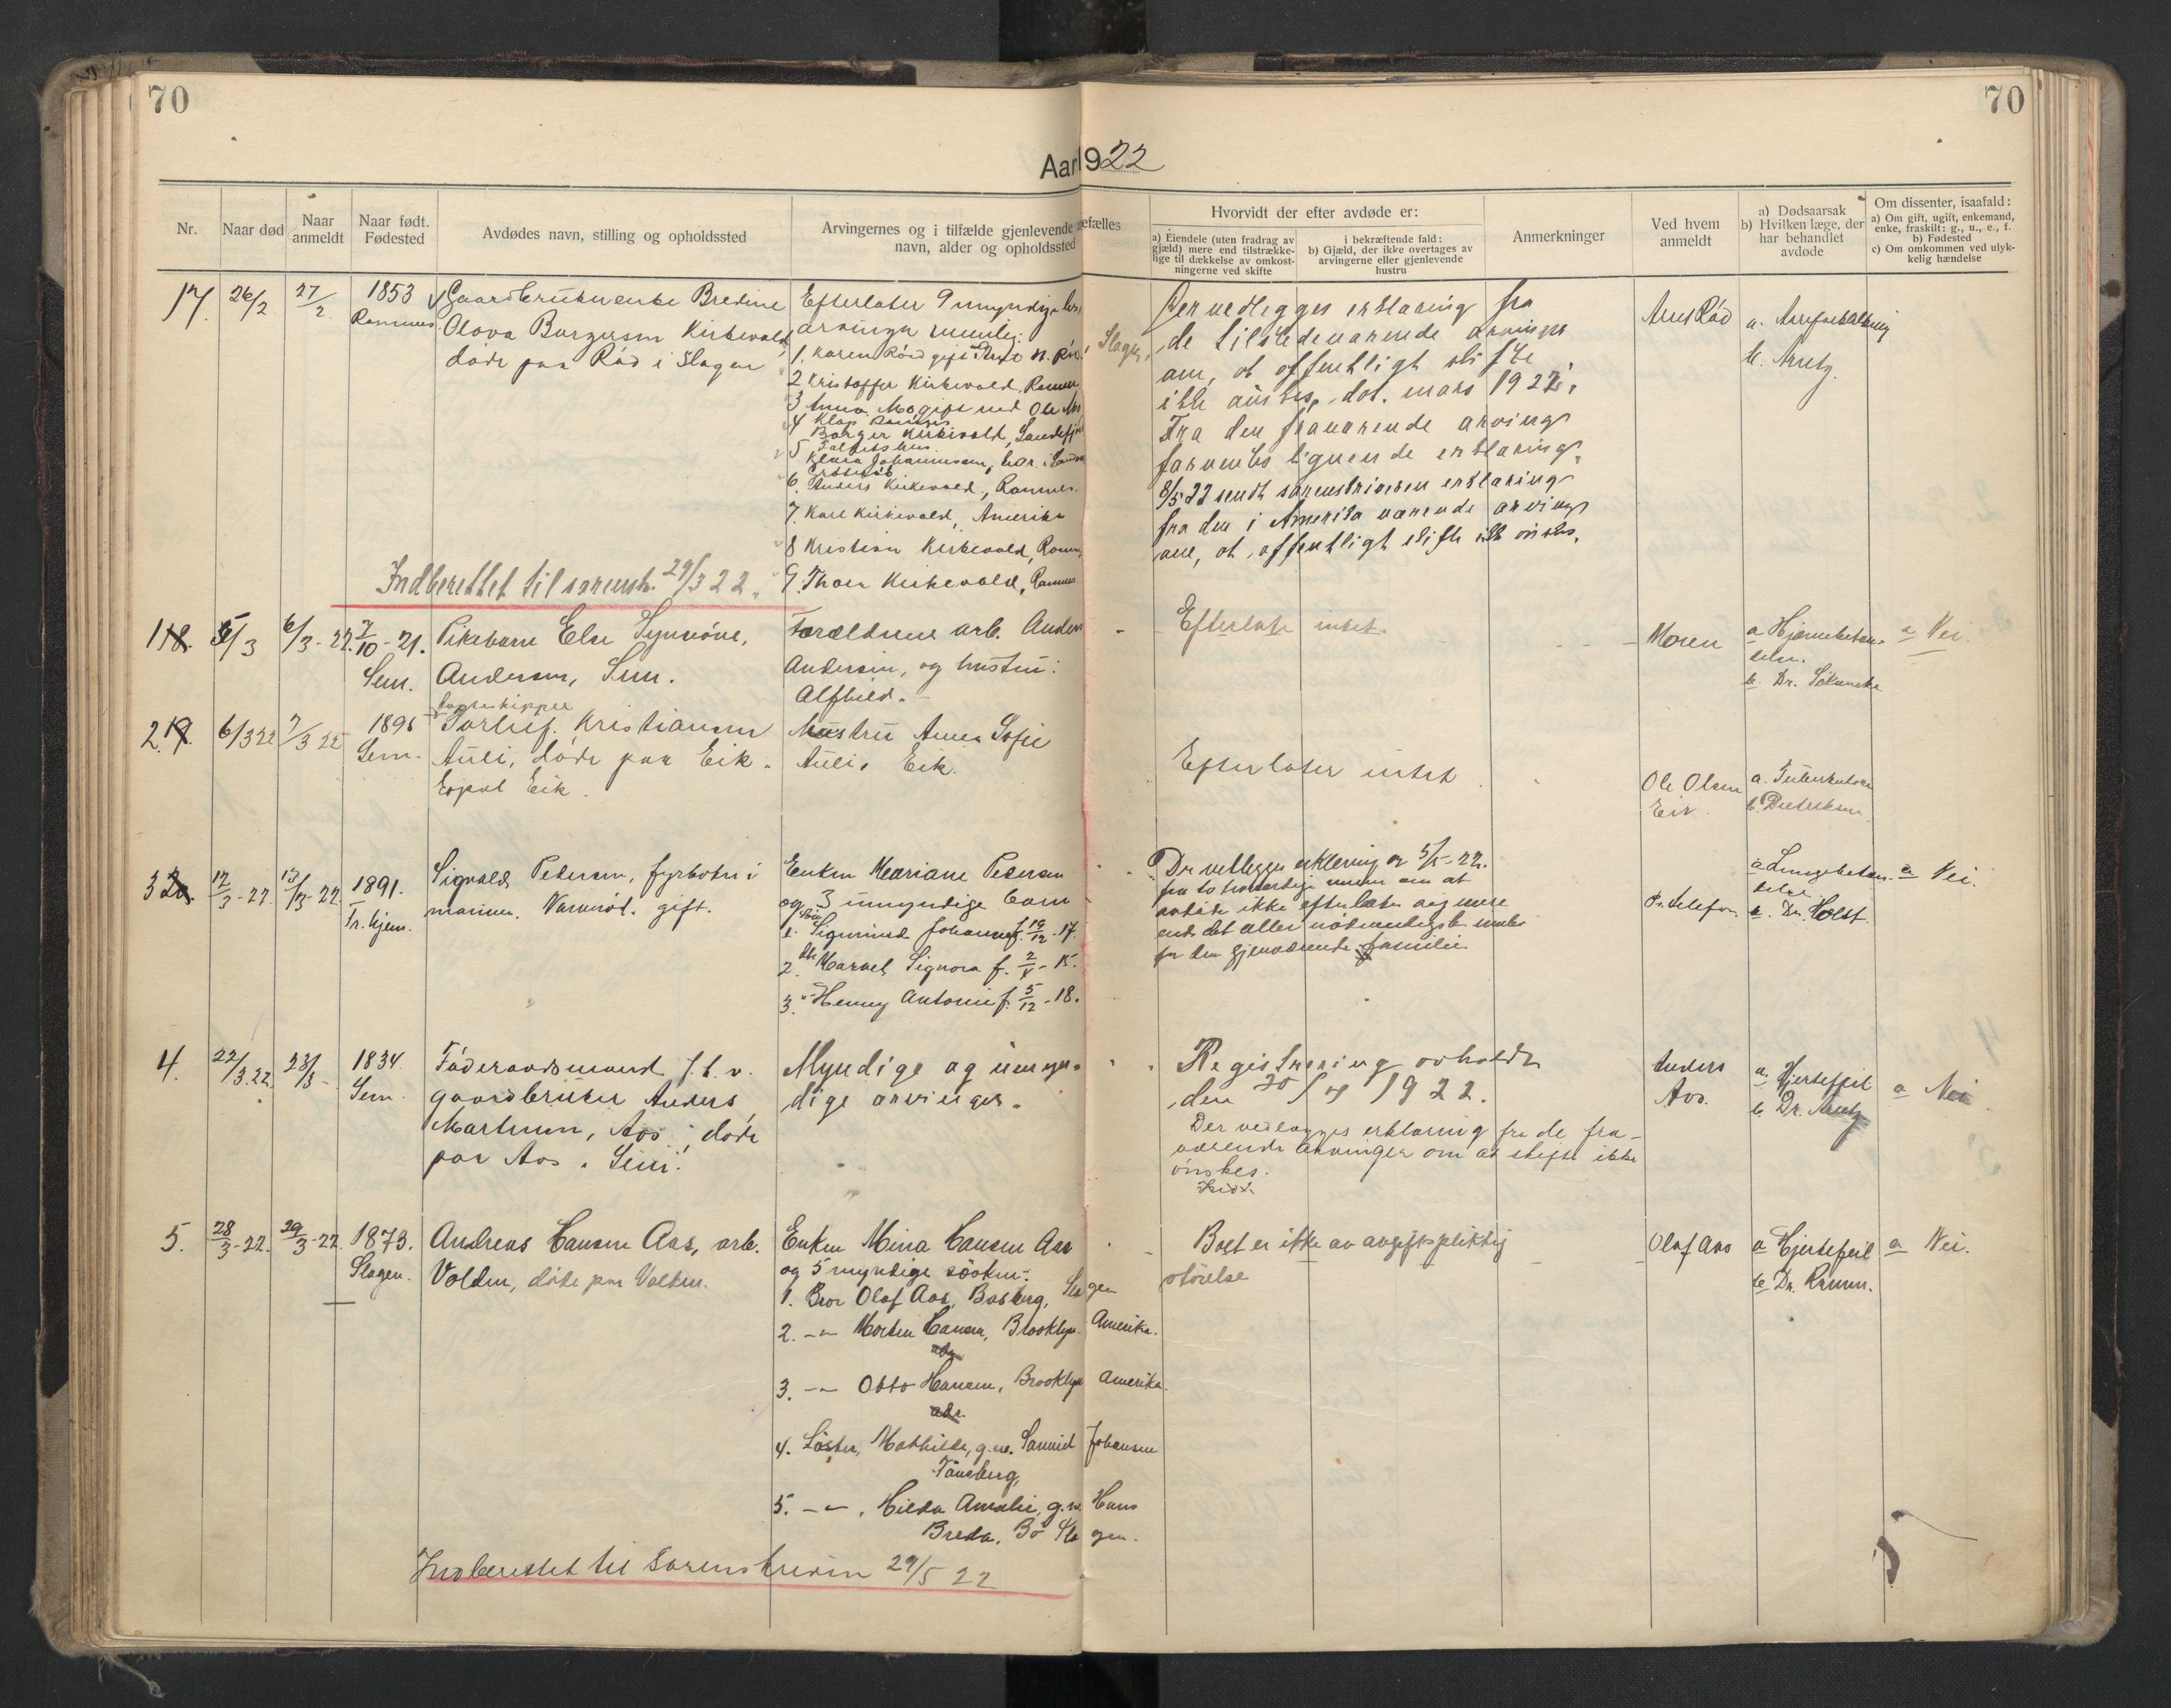 70
70
Aar 1922
Nr.
Naar død
Naar anmeldt
Naar født. Fødested
Avdødes navn, stilling og opholdssted
Arvingernes og i tilfælde gjenlevende
navn, alder og opholdssted
efælles
Hvorvidt der efter avdøde er:
a) Eiendele (uten fradrag av gjæld) mere end tilstrækkelige til dækkelse av omkostningerne ved skifte
i bekræftende fald:
b) Gjæld, der ikke overtages av arvingerne eller gjenlevende hustru
Anmerkninger
Ved hvem anmeldt
a) Dødsaarsak
b) Hvilken læge, der har behandlet avdøde
Om dissenter, isaafald:
a) Om gift, ugift, enkemand, enke, fraskilt: g., u., e., f.
b) Fødested
c) Om omkommen ved ulykkelig hændelse
17. 26/2 27/2 1853 Ramnes.
Gaardbrukerenke Bredine
Olava Kirkevold,
døde paa Rød i Slagen
Efterlater 9 myndige
arvinger nemlig:
1. Karen Rød gift Slagen,
2 Kristoffer Kirkevold, Ramnes
3 Anna gift med Ole
4 Borger Kirkevold, Sandefj
5 Klara Johannesen,
6. Anders Kirkevold, Ramnes
7. Karl Kirkevold, Amerika
8 Kristian Kirkevold, Ramnes
9. Thora Kirkevold, Ramnes
Der vedlegges erklæring fra
de tilstedeværende arvinger
om, at offentligt skifte
ikke ønskes, dat. mars 1922.
Fra den fraværende arving
forventes lignende erklæring.
8/5 22 sendt sorenskriveren erklæring
fra den i Amerika værende arving
om, at offentligt skifte ikke ønskes.
Rød
a.
b.
Indberettet til sorensk. 29/3 22.
1 18. 5/3 6/3 - 22. 7/10 - 21. Sem.
Pikebarn Else Synnøve,
Andersen, Sem.
Forældrene arb. Anders
Andersen, og hustru:
Alfhild.
Efterlater intet.
Moren
a Hjernebetændelse.
b. Dr.
a Nei.
2. 19. 6/3 22 7/3 22 1896 Sem.
Torleif Kristiansen
Auli, døde paa Eik.
Eik.
Hustru Anna Sofie
Auli, Eik.
Efterlater intet
Ole Olsen
Eik
a. Tuberkulose
b.
3 20. 12/3 - 22. 13/3 - 22. 1891. Fr.hjem.
Sigvald Petersen, fyrbøter i
marinen. gift.
Enken Mariane Petersen
og 3 umyndige barn
1. Sigmund Johannes f. 19/12 - 17.
2. Marvel Signora f. 2/5 - 15.
3. Henny Antonie f. 5/12 - 18.
Der vedlegges erklæring av 5/5 - 22.
fra to troværdige menn om at
avdøde ikke efterlater sig mere
end det aller nødvendigste
for den gjenværende familie.
Pr. telefon.
a Lungebetændelse
b. Dr. Holst.
a Nei.
4. 22/3.22 23/3 - 1834. Sem
Føderaadsmand f.h.v.
gaardbruker Anders
Martinsen, Aos; døde
paa Aos. Sem.
Myndige og umyndige
arvinger.
Registrering avholdt
den 1922.
Der vedlægges erklæring fra de fraværende
arvinger om at skifte ikke
ønskes.
Anders
Aos.
a. Hjertefeil
b. Dr.
a Nei
5. 28/3 - 22. 29/3 - 22. 1873. Slagen.
Andreas Hansen Aas, arb.
Volden, døde paa Volden.
Enken Mina Hansen Aas
og 5 myndige søsken:
1. Bror Olaf Aas, Basberg, Slagen
2. -"- Morten Hansen, Brooklyn. Amerika.
3. -"- Otto Hansen, Brooklyn Amerika.
4. Søster, Mathilde, g.m. Johansen
Tønsberg,
5. -"-. Hilda Amalie, g.m. Hans
Breda, Bø Slagen.
Boet er ikke av avgiftspliktig
størelse
Olaf Aas
a Hjertefeil
b Dr.
a Nei.
Indberettet til Sorenskriveren 29/5 22